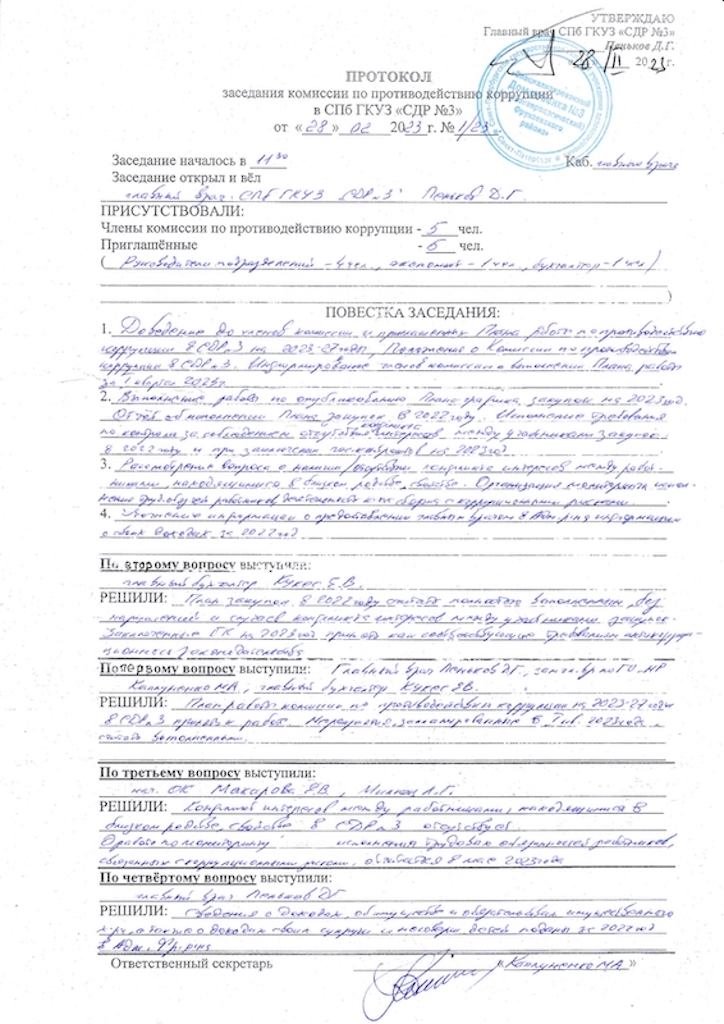 УТВЕРЖДАЮ
Главный врач СПб ГКУЗ «СДР №3»
Пеньков Д.Г.
«28» 02 2023г.
ПРОТОКОЛ
заседания комиссии по противодействию коррупции
в СПб ГКУЗ «СДР №3»
от «28» 02 2023 г. № 1/23
Заседание началось в 11 30 Каб. главного врача
Заседание открыл и вёл
главный врач СПб ГКУЗ «СДР №3» Пеньков Д.Г.
ПРИСУТСТВОВАЛИ:
Члены комиссии по противодействию коррупции - 5 чел.
Приглашённые - 6 чел.
( Руководители подразделений - 4 чел., экономист - 1 чел., бухгалтер - 1 чел )
)
ПОВЕСТКА ЗАСЕДАНИЯ:
1. Доведение до членов комиссии и приглашенных Плана работы по противодействию
коррупции в СДР №3 на 2023-27 годы, Положения о Комиссии по противодействию
коррупции в СДР №3. Информирование членов комиссии о выполнении Плана работы
за 1 квартал 2023г.
2. Выполнение работ по опубликованию Плана-графика закупок на 2023 год.
Отчёт об исполнении Плана закупок в 2022 году. Исполнение требования
по контролю за соблюдением отсутствия конфликта интересов между участниками закупок
в 2022 году и при заключении госконтрактов на 2023 год
3. Рассмотрение вопроса о наличии/отсутствии конфликта интересов между работ-
никами, находящимися в близком родстве, свойстве. Организация мониторинга испол-
нения труд. обяз-тей работников, деятельность которых связана с коррупционными рисками.
4. информации о предоставлении главным врачом в Адм. р-на информации
о своих доходах за 2022 год.
По второму вопросу выступили:
главный бухгалтер Кукес Е.В.
РЕШИЛИ: План закупок в 2022 году считать полностью выполненным, без
нарушений и случаев конфликта интересов между участниками закупок.
Заключенные ГК на 2023 год принять как соответствующие требованиям антикорруп-
ционного законодательства
По первому вопросу выступили: Главный врач Пеньков Д.Г., зам. гл. вр. по ГО и МР
Каплуненко М.А., главный бухгалтер Кукес Е.В.
РЕШИЛИ: План работы комиссии по противодействию коррупции на 2023-27 годы
в СДР №3 принять к работе. Мероприятия, запланированные в I кв. 2023 года
считать выполненными.
По третьему вопросу выступили:
нач. ОК Макарова Е.В., Л.Г.
РЕШИЛИ: Конфликт интересов между работниками, находящимися в
близком родстве, свойстве в СДР №3 отсутствует.
О работе по мониторингу исполнения трудовых обязанностей работников,
связанных с коррупционными рисками, отчитаться в мае 2023 года
По четвёртому вопросу выступили:
главный врач Пеньков ДГ
РЕШИЛИ: Сведения о доходах, об имуществе и обязательствах имущественного
характера, а также о доходах своих супруги и несоверш. детей поданы за 2022 год
в Адм. Фр. р-на
Ответственный секретарь «Каплуненко МА»